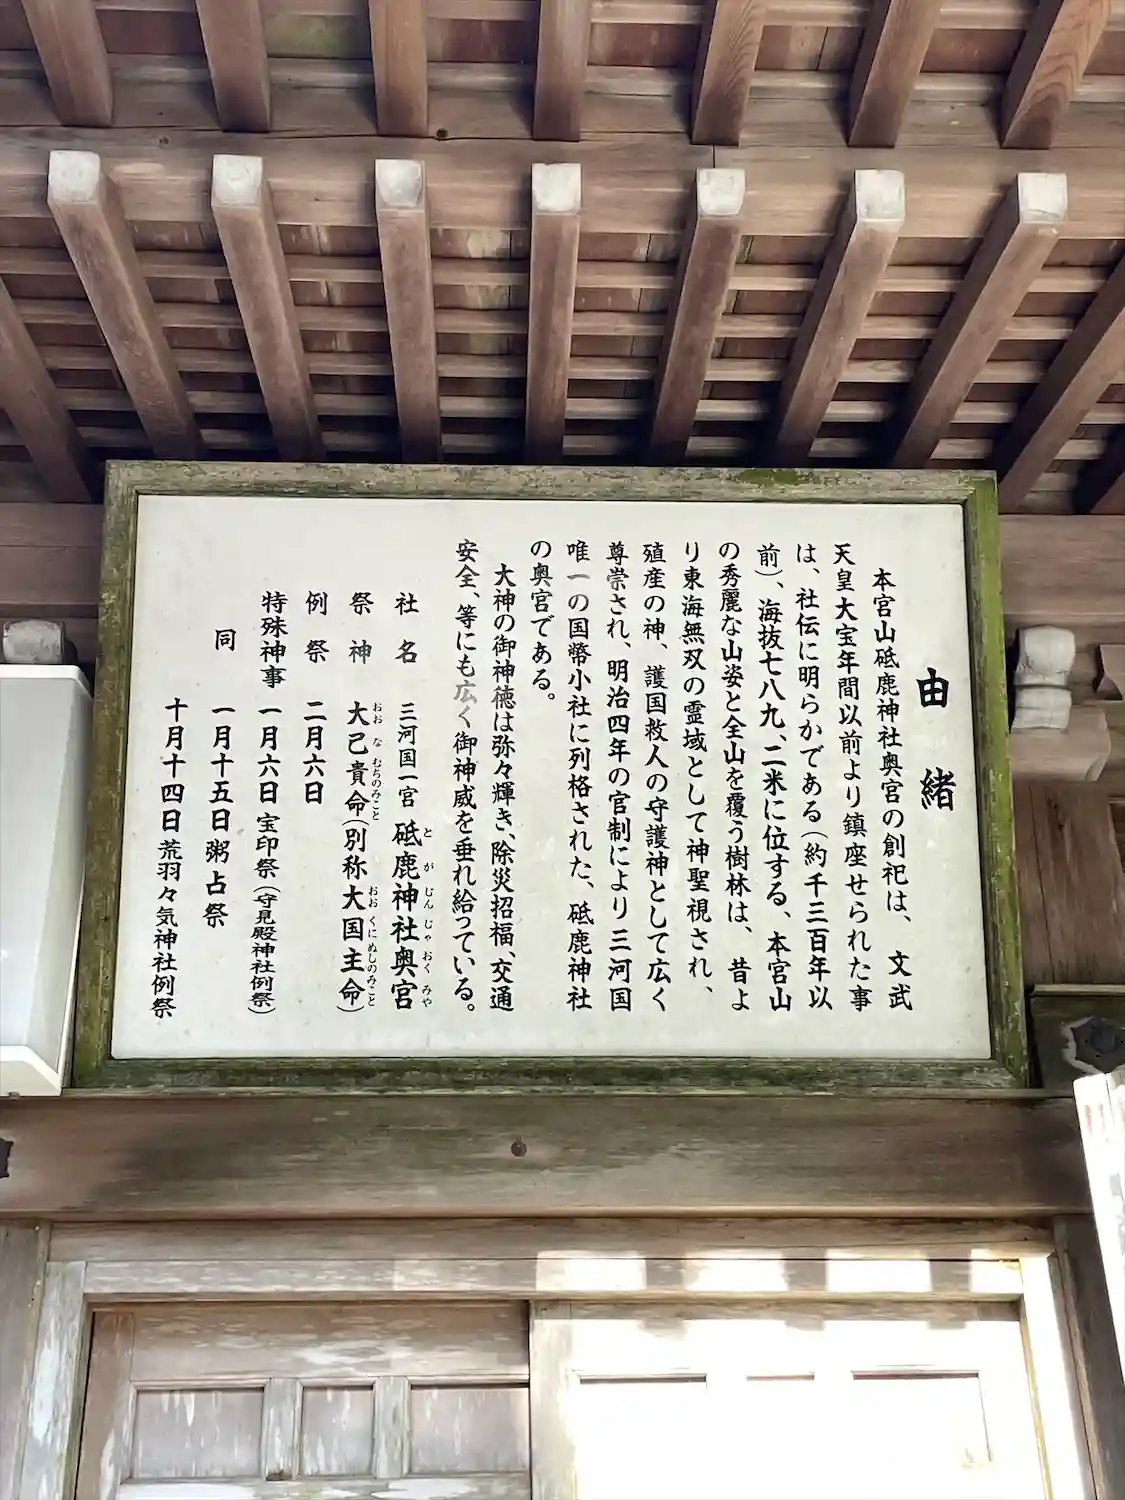 由緒
本宮山砥鹿神社奥宮の創祀は、文武
天皇大宝年間以前より鎮座せられた事
は、社伝に明らかである(約千三百年以
前)、海抜七八九、二米に位する、本宮山
の秀麗な山姿と全山を覆う樹林は、昔よ
り東海無双の霊域として神聖視され、
殖産の神、護国救人の守護神として広く
尊崇され、明治四年の官制により三河国
唯一の国幣小社に列格された、砥鹿神社
の奥宮である。
大神の御神徳は弥々輝き、除災招福、交通
安全、等にも広く御神威を垂れ給っている。
社名 三河国一宮 砥鹿神社奥宮
と が じん じゃ おく みや
祭神 大己貴命(別称大国主命)
おお な むちのみこと おお くに ぬしのみこと
例祭 二月六日
特殊神事 一月六日 宝印祭(守見殿神社例祭)
同 一月十五日 粥占祭
十月十四日 荒羽々気神社例祭